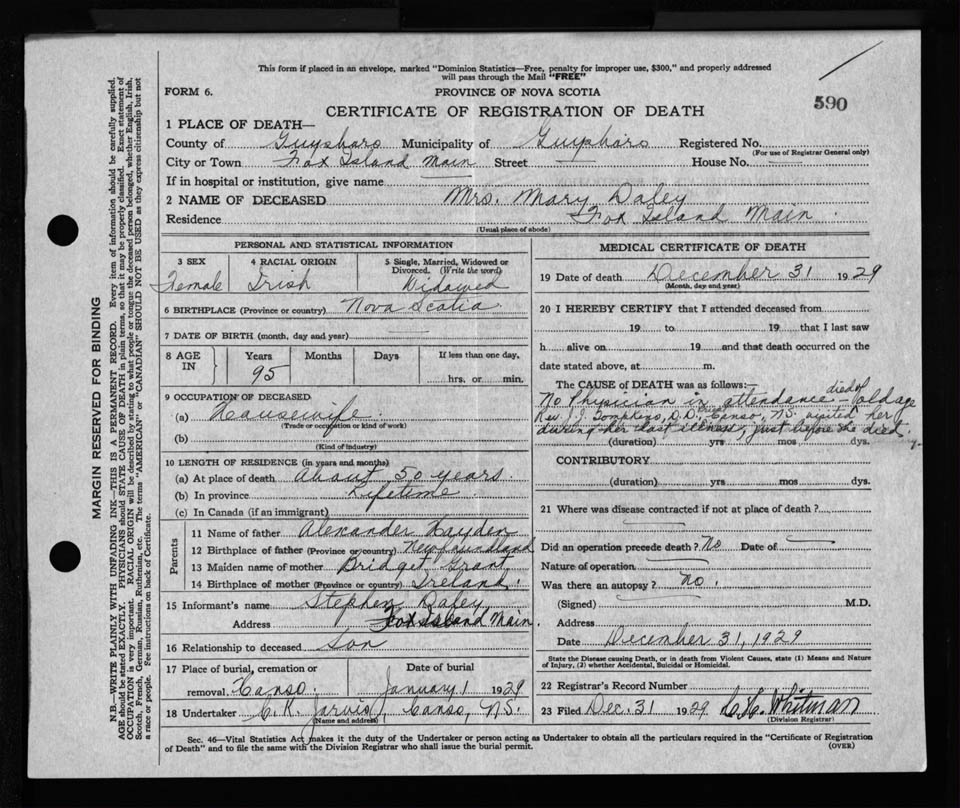 This form if placed in an envelope, marked "Dominion Statistics—Free, penalty for improper use, $300," and properly addressed
will pass through the Mail "FREE"
FORM 6.
PROVINCE OF NOVA SCOTIA
590
CERTIFICATE OF REGISTRATION OF DEATH
1 PLACE OF DEATH—
County of Guysboro Municipality of Guysboro Registered No.
(For use of Registrar General only)
City or Town Fox Island Main Street — House No. —
If in hospital or institution, give name
2 NAME OF DECEASED Mrs. Mary Dafey
Residence Fox Island Main
(Usual place of abode)
PERSONAL AND STATISTICAL INFORMATION
3 SEX
Female
4 RACIAL ORIGIN
Irish
5 Single, Married, Widowed or
Divorced. (Write the word)
Widowed
6 BIRTHPLACE (Province or country) Nova Scotia
7 DATE OF BIRTH (month, day and year)
8 AGE
IN
Years
95
Months
Days
If less than one day,
hrs. or min.
9 OCCUPATION OF DECEASED
(a) Housewife
(Trade or occupation or kind of work)
(b)
(Kind of industry)
10 LENGTH OF RESIDENCE (in years and months)
(a) At place of death About 50 years
(b) In province Lifetime
(c) In Canada (if an immigrant)
Parents
11 Name of father Alexander Hayden
12 Birthplace of father (Province or country) Newfoundland
13 Maiden name of mother Bridget Grant
14 Birthplace of mother (Province or country) Ireland
15 Informant's name Stephen Dafey
Address Fox Island Main.
16 Relationship to deceased Son
17 Place of burial, cremation or
removal Canso.
Date of burial
January 1 1929
18 Undertaker C. K. Jarvis, Canso, N.S.
(Name and address)
MEDICAL CERTIFICATE OF DEATH
19 Date of death December 31 1929
(Month, day and year)
20 I HEREBY CERTIFY that I attended deceased from
19 to 19 that I last saw
h alive on 19 and that death occurred on the
date stated above, at m.
The CAUSE OF DEATH was as follows:—
No Physician in attendance – died of old age
Rev. J. J. Tompkins, D.D., Canso, N.S. visited her
during her last illness, just before she died.
(duration) yrs. mos. dys.
CONTRIBUTORY
(duration) yrs mos dys.
21 Where was disease contracted if not at place of death?
Did an operation precede death? No Date of —
Nature of operation
Was there an autopsy? No.
(Signed) M.D.
Address
Date December 31, 1929
State the Disease causing Death, or in death from Violent Causes, state (1) Means and Nature
of Injury, (2) whether Accidental, Suicidal or Homicidal.
22 Registrar's Record Number
23 Filed Dec. 31 1929 Whitman
(Division Registrar)
Sec. 46—Vital Statistics Act makes it the duty of the Undertaker or person acting as Undertaker to obtain all the particulars required in the "Certificate of Registration
of Death" and to file the same with the Division Registrar who shall issue the burial permit.
(OVER)
MARGIN RESERVED FOR BINDING
N.B.—WRITE PLAINLY WITH UNFADING INK—THIS IS A PERMANENT RECORD. Every item of information should be carefully supplied.
AGE should be stated EXACTLY. PHYSICIANS should STATE CAUSE OF DEATH in plain terms, so that it may be properly classified. Exact statement of
OCCUPATION is very important. RACIAL ORIGIN will be described by stating to what people or tongue the deceased person belonged, whether English, Irish,
Scotch, French, German, Russian, Ruthenian, etc. The terms "AMERICAN" or "CANADIAN" SHOULD NOT BE USED as they express citizenship but not
a race or people. Fee instructions on back of Certificate.